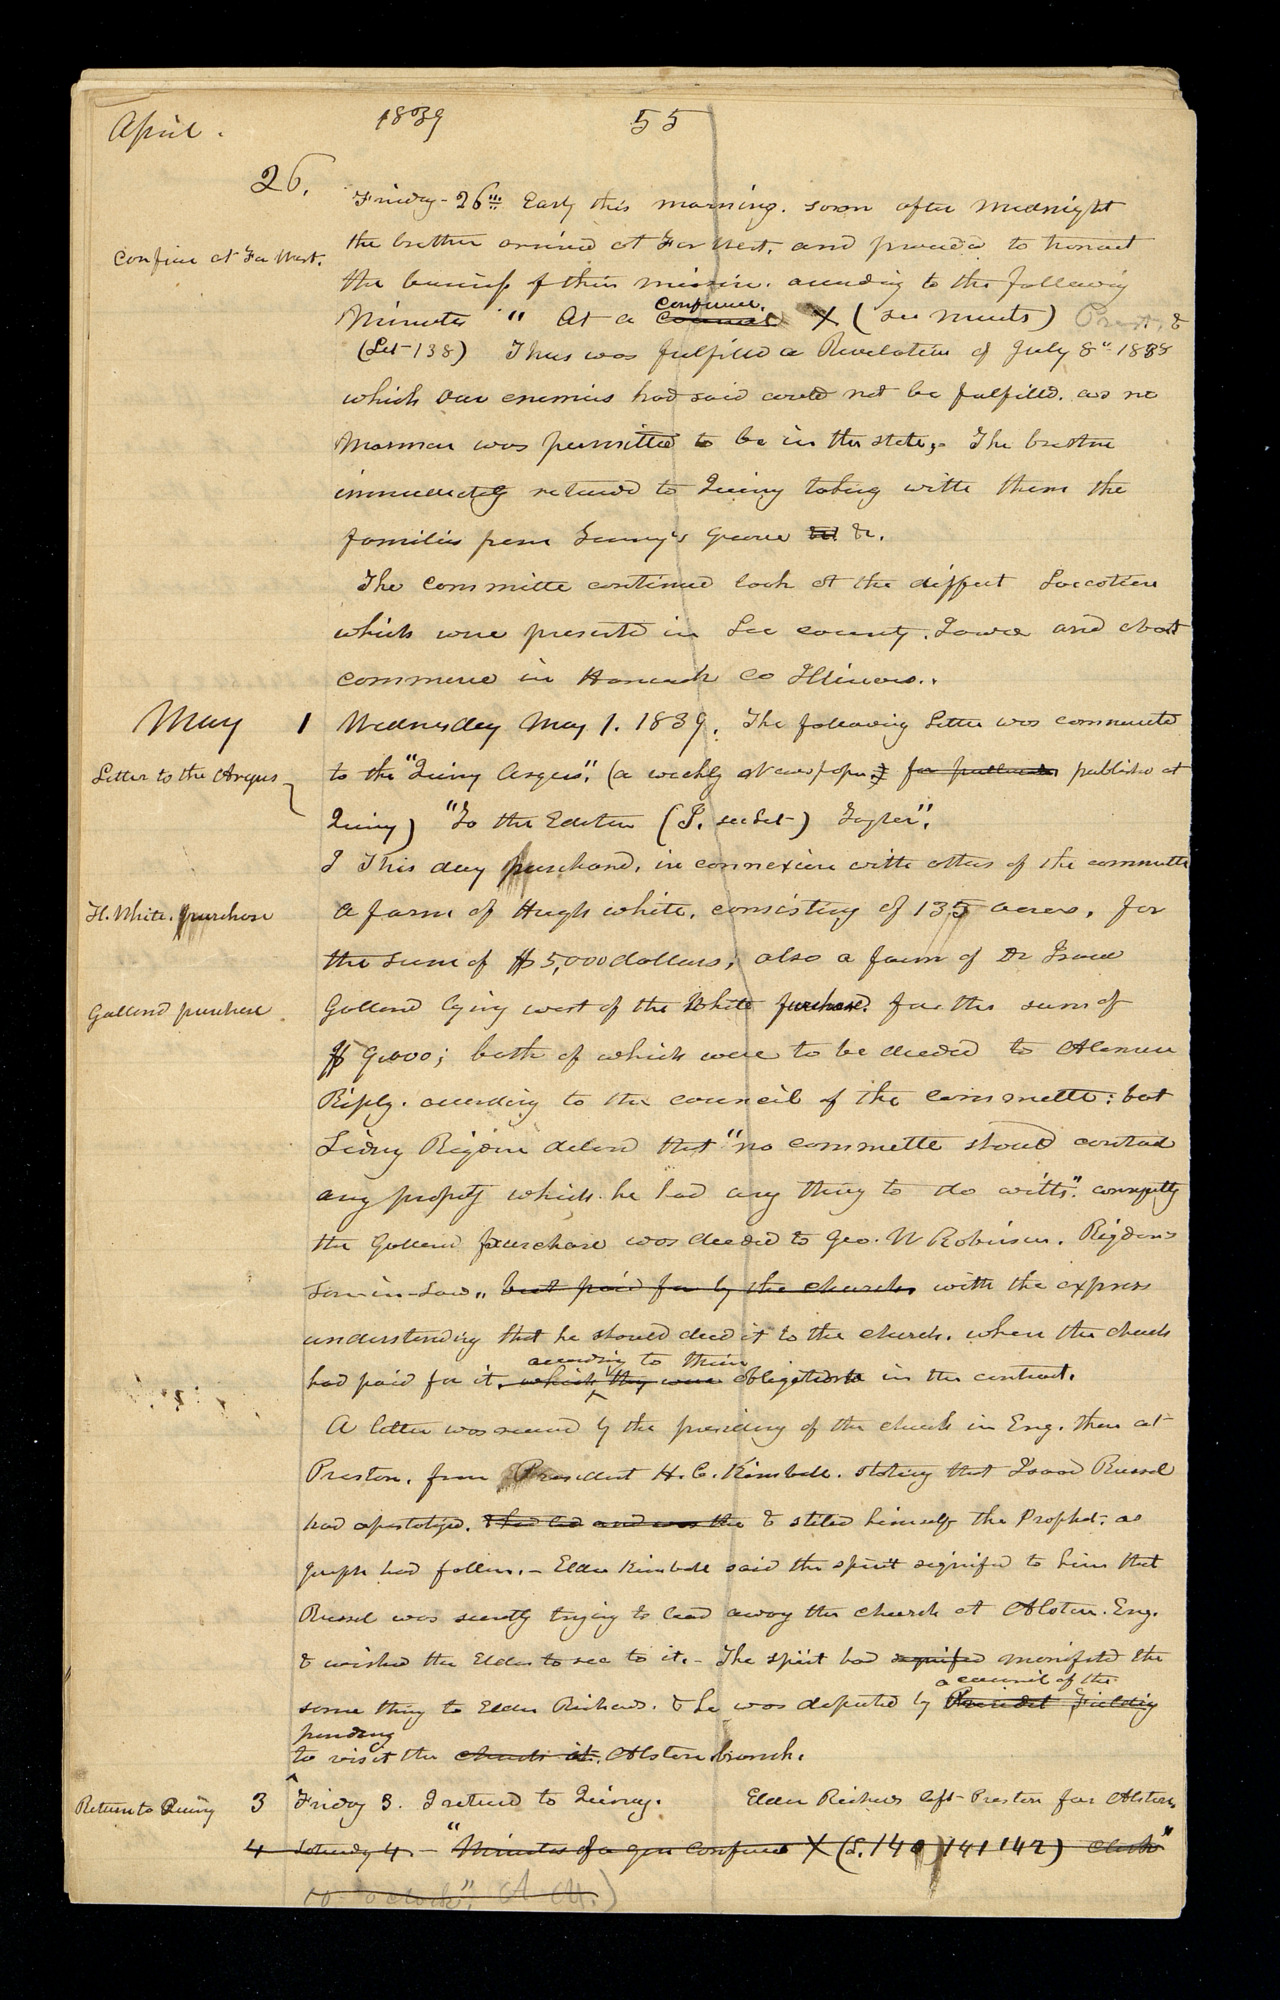 April. 1839 55
26. Friday- 26th Early this morning. soon after midnight
Confrnce at Far West. the brethrn arrived at Far West, and proceedd to transact
the business of their mission. according to the following
Minutes " At a conference. council X (see minuts) &
(Set-138) Thus was fulfilled a Revelation of July 8th 1838
which our enemies had said could not be fulfilled. as no
Mormon was permitted to be in the state,- The brethrn
immediately returnd to Quincy taking with them the
families from Tenny's Grove &c &c.
The committe continued look at the diffrent Loccotion
which were presentd in Lee county. Iowa and about
commerce in Hancock co Illinois..
May 1 Wednesday May 1. 1839. The following Letter was communicte
Letter to the Argus to the "Quincy Argus", (a weekly Newspaper.) for publicatn publishd at
Quincy) "To the Editor (P. see Set-) Taylor".
I This day purchasd, in connexion with others of the committe
H. White. purchase a farm of Hugh white, consisting of 135 acres, for
the sum of $5,000 dollars; also a farm of Dr Isaac
Galland purchase. Galland lying west of the White purchase. for the sum of
$ 9,000; both of which were to be deeded to Alanson
Riply. according to the council of the committe: but
Sidny Rigdon declard that "no committe should control
any proprty which he had any thing to do with". consequtly
the Galland purchase was deeded to Geo. W Robinson. Rigdon's
son-in-Law,, but paid for by the church. with the express
understanding that he should deed it to the church. when the church
according to thier
had paid for it. which they were obligation in the contract.
A letter was receivd by the presidncy of the church in Eng. then at
Preston. from President H. C. Kimball. stating that Isaac Russel
had apostatizd. & had led and was the & stiled himself the Prophet, as
Joseph had fallen.- Elder Kimball said the spirit signifid to him that
Russel was secretly trying to lead away the church at Alston. Eng.
& wished the Elders to see to it.- The spirit had signified manifestd the
a council of the
same thing to Elder Richards. & he was deputed by President Fielding
presidncy
to visit the church at. Alston branch.
Return to Quincy 3 Friday 3. I returnd to Quincy. Elder Richards left Preston for Alston
4 Saturdy 4.- "Minutes of a gen Confrnce X (S. 140) 141 142) clock"
10 o clock", A.M.)